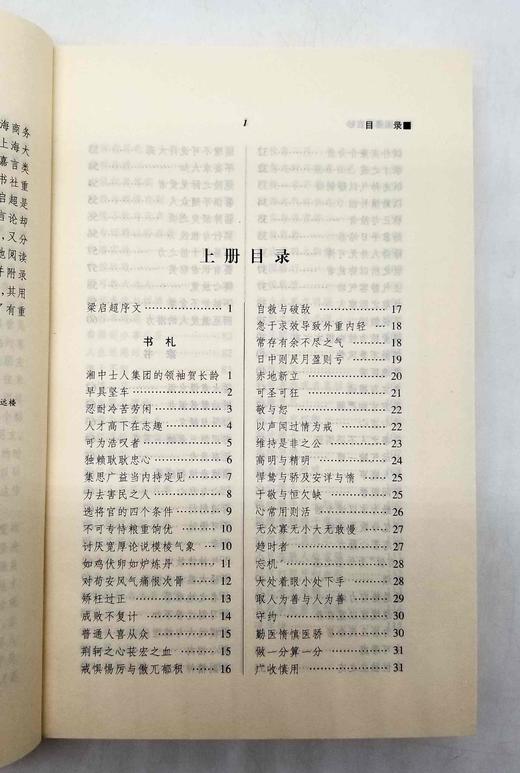 1
目 录■
上册目录
梁启超序文 1
书 札
湘中士人集团的领袖贺长龄 1
早具坚车 2
忍耐冷苦劳闲 3
人才高下在志趣 4
可为浩叹者 5
独赖耿耿忠心 6
集思广益当内持定见 7
力去害民之人 8
选将官的四个条件 9
不可专恃粮重饷优 10
讨厌宽厚论说模棱气象 10
如鸡伏卵如炉炼丹 11
对苟安风气痛恨次骨 12
矫枉过正 13
成败不复计 14
普通人喜从众 15
荆轲之心苌宏之血 15
戒惧惕厉与傲兀郁积 16
自救与破敌 17
急于求效导致外重内轻 18
常存有余不尽之气 18
日中则昃月盈则亏 19
赤地新立 20
可圣可狂 21
敬与恕 22
以声闻过情为戒 22
维持是非之公 23
高明与精明 24
悍鸷与骄及安详与惰 25
干敬与恒欠缺 25
心常用则活 26
无众寡无小大无敢慢 27
趋时者 27
忘机 28
大处着眼小处下手 28
取人为善与人为善 29
守约 30
勤医惰慎医骄 30
做一分算一分 31
广收慎用 31
海商务
上海大
嘉言类
书社重
启超是
言论却
，又分
地阅读
并附录
，其用
了有重
远楼